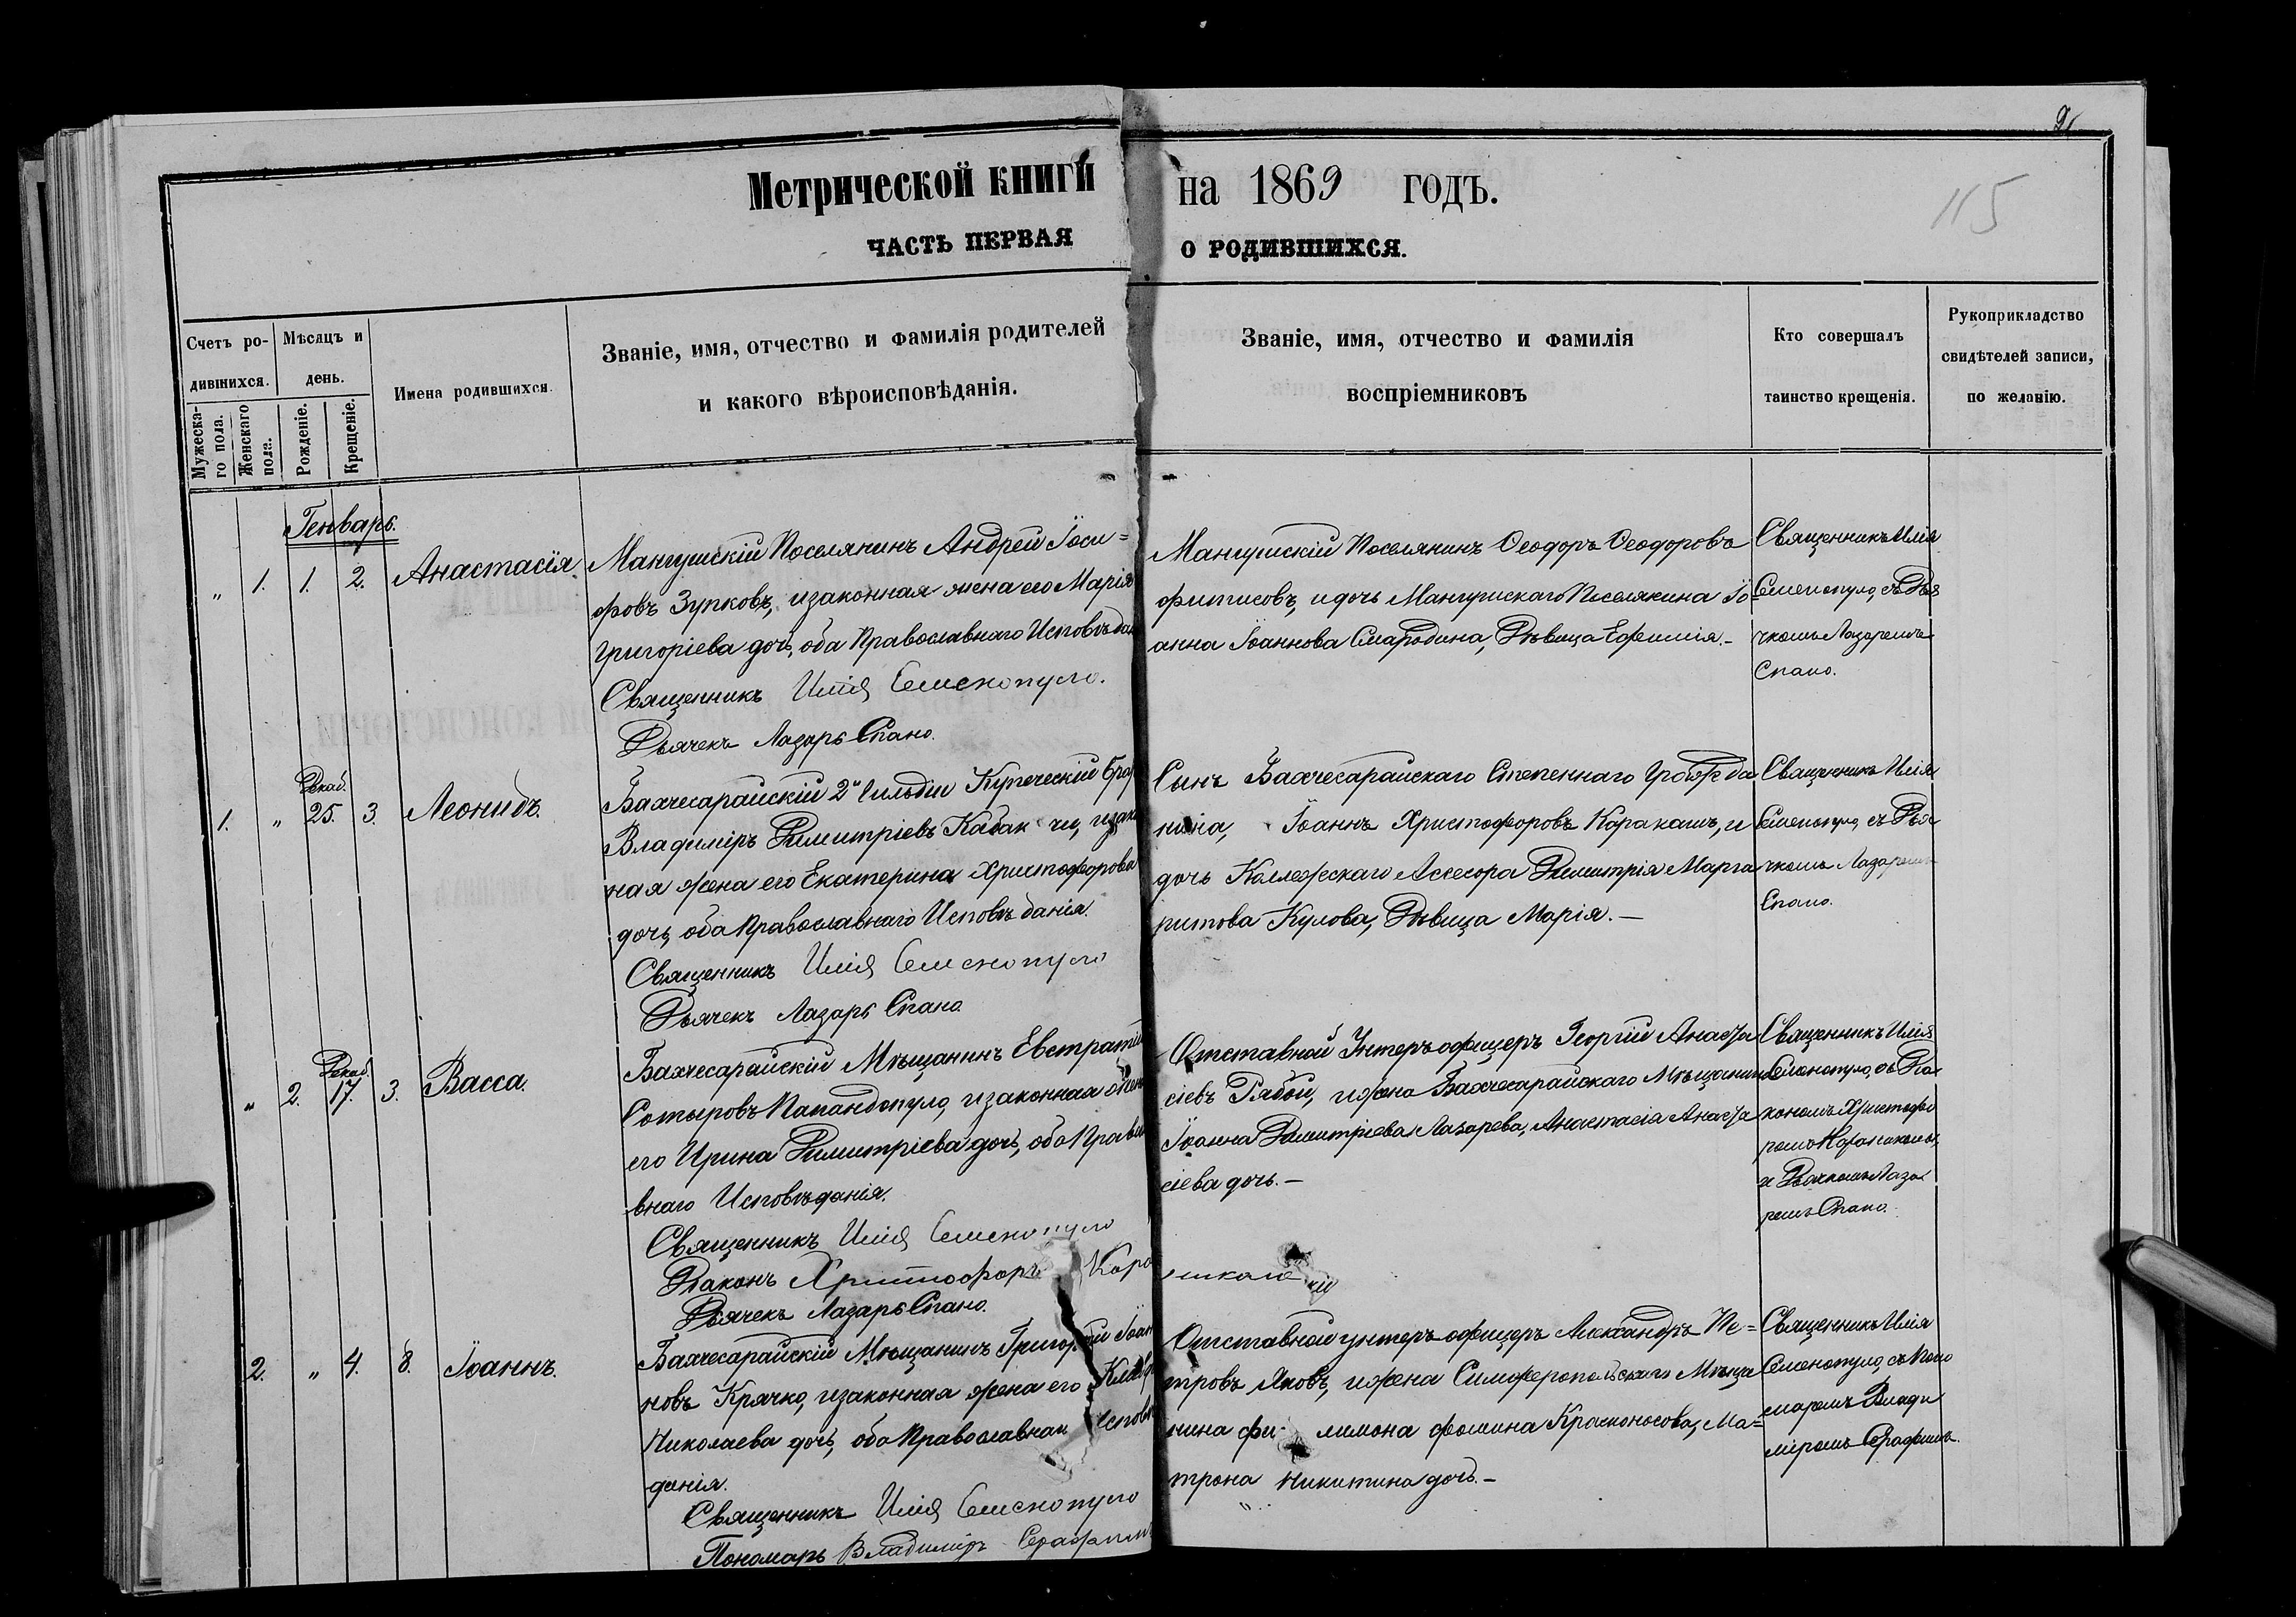 9
115
Метрической книги на 1869 годъ.
ЧАСТЬ ПЕРВАЯ О РОДИВШИХСЯ.
Счетъ ро-
дившихся.
Мужеска-
го пола.
Женскаго
пола.
Мѣсяцъ и
день.
Рожденіе.
Крещеніе.
Имена родившихся.
Званіе, имя, отчество и фамилія родителей
и какого вѣроисповѣданія.
Званіе, имя, отчество и фамилія
воспріемниковъ
Кто совершалъ
таинство крещенія.
Рукоприкладство
свидѣтелей записи,
по желанію.
Генварь.
„ 1. 1. 2. Анастасія.
Мангушскій Поселянинъ Андрей Іоси=
фовъ Зупковъ, и законная жена его Марія
Григоріева дочь, оба Православнаго Исповѣда
Священникъ Илія Семенопуло.
Дьячекъ Лазарь Спано.
Мангушскій Поселянинъ Ѳеодоръ Ѳеодоровъ
и дочь Мангушскаго Поселянина Іо
анна Іоаннова Дѣвица Ефимія.-
Священникъ Илія
Семенопуло, съ Дья
чкомъ Лазаремъ
Спано.
1. „ Декаб. 25. 3. Леонидъ.
Бахчесарайскій 2й Гильдіи Купеческій брат
Владиміръ Димитріевъ Кабакчи, и закон
ная жена его Екатерина Христофорова
дочь, оба Православнаго Исповѣданія.
Священникъ Илія Семенопуло
Дьячекъ Лазарь Спано
Сынъ Бахчесарайскаго Степеннаго Гражда
нина, Іоаннъ Христофоровъ Каракашъ, и
дочь Коллежскаго Ассесора Димитрія Марга
ритова Кулова, Дѣвица Марія.-
Священникъ Илія
Семенопуло, съ Дья
чкомъ Лазаремъ
Спано.
„ 2. Декаб. 17. 3. Васса.
Бахчесарайскій Мѣщанинъ Евстратій
Сотыровъ Папандопуло, и законная жен
его Ирина Димитріева дочь, оба Правосла
внаго Исповѣданія.
Священникъ Илія Семенопуло
Діаконъ Христофоръ
Дьячекъ Лазарь Спано.
Отставной Унтеръ офицеръ Георгій Анаста
сіевъ Рябой, и жена Бахчесарайскаго Мѣщанина
Іоанна Димитріева Лазарева, Анастасія Анаста
сіева дочь.-
Священникъ Илія
Семенопуло, съ Діа
кономъ Христофо
ромъ
и Дьячкомъ Лаза
ремъ Спано.
2. „ 4. 8. Іоаннъ.
Бахчесарайскій Мѣщанинъ Григорій Іоан
новъ Крачко, и законная жена его
Николаева дочь, оба Православнаго Исповѣ
данія.
Священникъ Илія Семенопуло
Пономарь Владиміръ Серафим
Отставной унтеръ офицеръ Александръ Пе=
тровъ Яковъ, и жена Симферопольскаго Мѣща
нина Филимона Фомина Красноносова, Ма=
трона Никитина дочь.-
Священникъ Илія
Семенопуло, съ Поно
маремъ Влади
міромъ